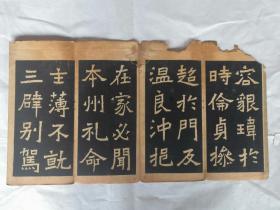 容貌瑋於
時倫貞摻
超於門友
溫良沖挹
在家必聞
本州礼命
主薄不就
三辟別駕